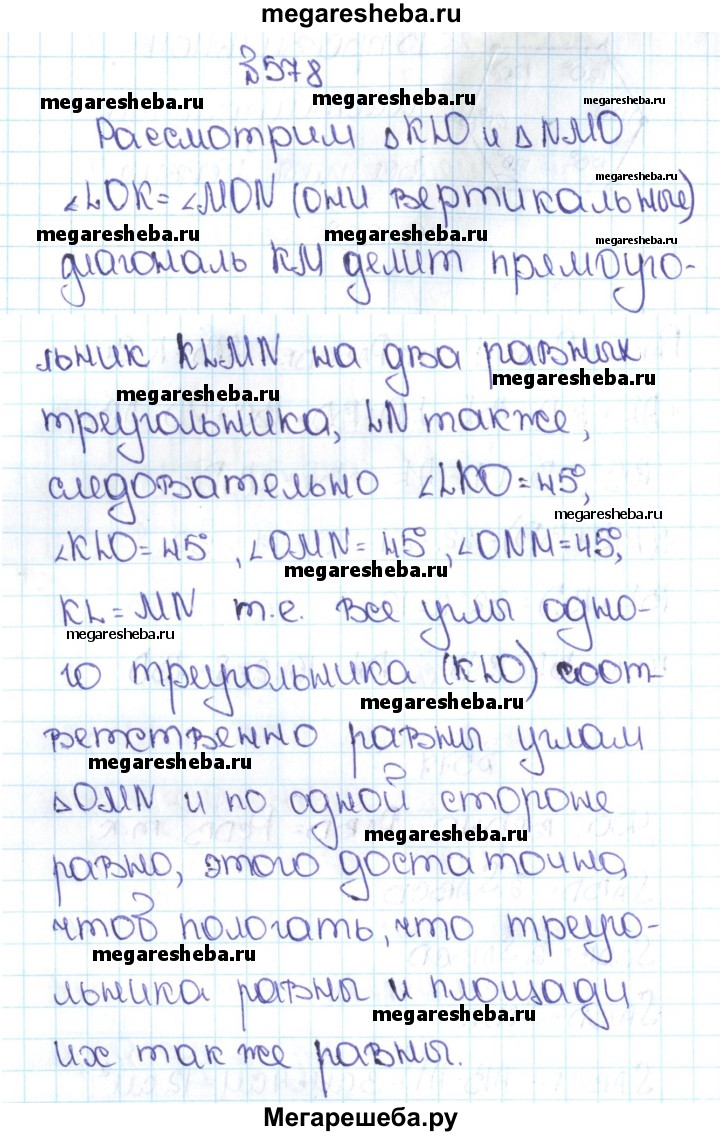 megaresheba.ru
№578
megaresheba.ru megaresheba.ru
Рассмотрим ΔKLO и ΔNMO
megaresheba.ru
∠LOK=∠MON (они вертикальные)
megaresheba.ru megaresheba.ru
диагональ KM делит прямоуго-
льник KLMN на два равных
megaresheba.ru megaresheba.ru
треугольника, LN также,
следовательно ∠LKO=45°,
megaresheba.ru
∠KLO=45°, ∠OMN=45°, ∠ONM=45°,
megaresheba.ru
KL=MN т.е. все углы одно-
megaresheba.ru
го треугольника (KLO) соот-
megaresheba.ru
ветственно равны углам
megaresheba.ru
ΔOMN и по одной стороне
megaresheba.ru
равно, этого достаточно,
чтоб пологать, что треуго-
megaresheba.ru
льника равны и площади
megaresheba.ru
их также равны.
Мегарешеба.ру